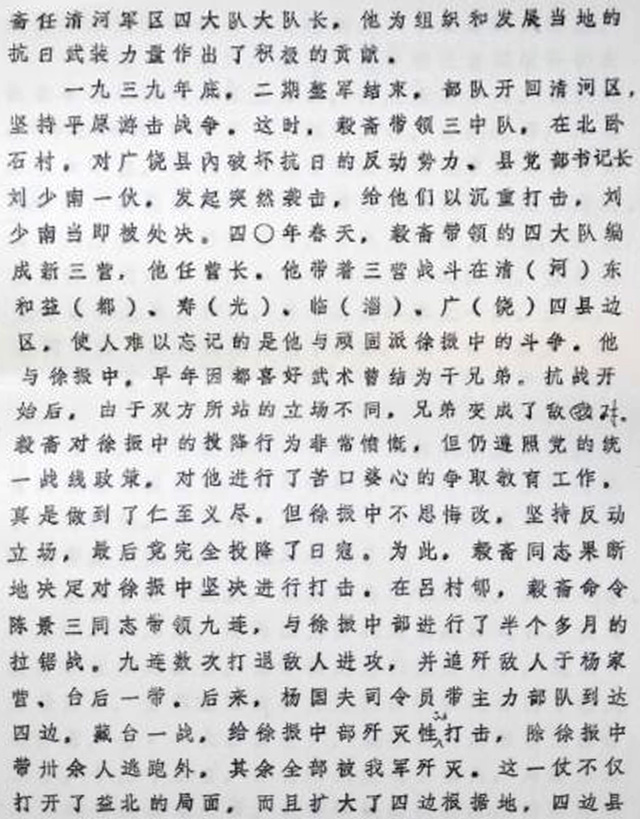 斋任清河军区四大队大队长。他为组织和发展当地的
抗日武装力量作出了积极的贡献。
一九三九年底，二期整军结束。部队开回清河区，
坚持平原游击战争。这时，毅斋带领三中队，在北卧
石村，对广饶县内破坏抗日的反动势力、县党部书记长
刘少南一伙，发起突然袭击，给他们以沉重打击，刘
少南当即被处决。四〇年春天，毅斋带领的四大队编
成新三营，他任营长。他带着三营战斗在清（河）东
和益（都）、寿（光）、临（淄）、广（饶）四县边
区。使人难以忘记的是他与顽固派徐振中的斗争。他
与徐振中，早年因都喜好武术曾结为干兄弟。抗战开
始后，由于双方所站的立场不同，兄弟变成了敌对。
毅斋对徐振中的投降行为非常愤慨，但仍遵照党的统
一战线政策，对他进行了苦口婆心的争取教育工作。
真是做到了仁至义尽。但徐振中不思悔改，坚持反动
立场，最后竟完全投降了日寇。为此，毅斋同志果断
地决定对徐振中坚决进行打击。在吕村邻，毅斋命令
陈景三同志带领九连，与徐振中部进行了半个多月的
拉锯战。九连数次打退敌人进攻，并追歼敌人于杨家
营、台后一带。后来，杨国夫司令员带主力部队到达
四边，藏台一战，给徐振中部歼灭性打击，除徐振中
带卅余人逃跑外，其余全部被我军歼灭。这一仗不仅
打开了益北的局面，而且扩大了四边根据地，四边县